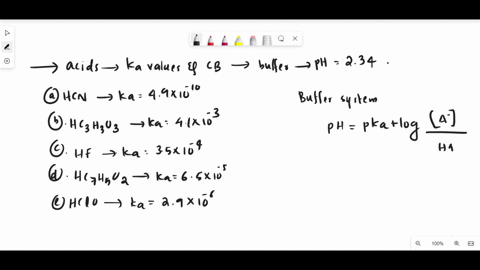 → acids → ka values of CB → buffer → pH = 2.34 .
(a) HCN → ka = 4.9×10⁻¹⁰
(b). HC₃H₃O₃ → ka = 4.1×10⁻³
(c). Hf → ka = 3.5×10⁻⁴
(d). HC₇H₅O₂ → ka = 6.5×10⁻⁵
(e) HClO → ka = 2.9×10⁻⁶
Buffer system
pH = pka + log [A⁻]
HA
100%